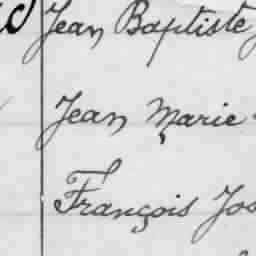 Jean Baptiste
Jean Marie
François Jos